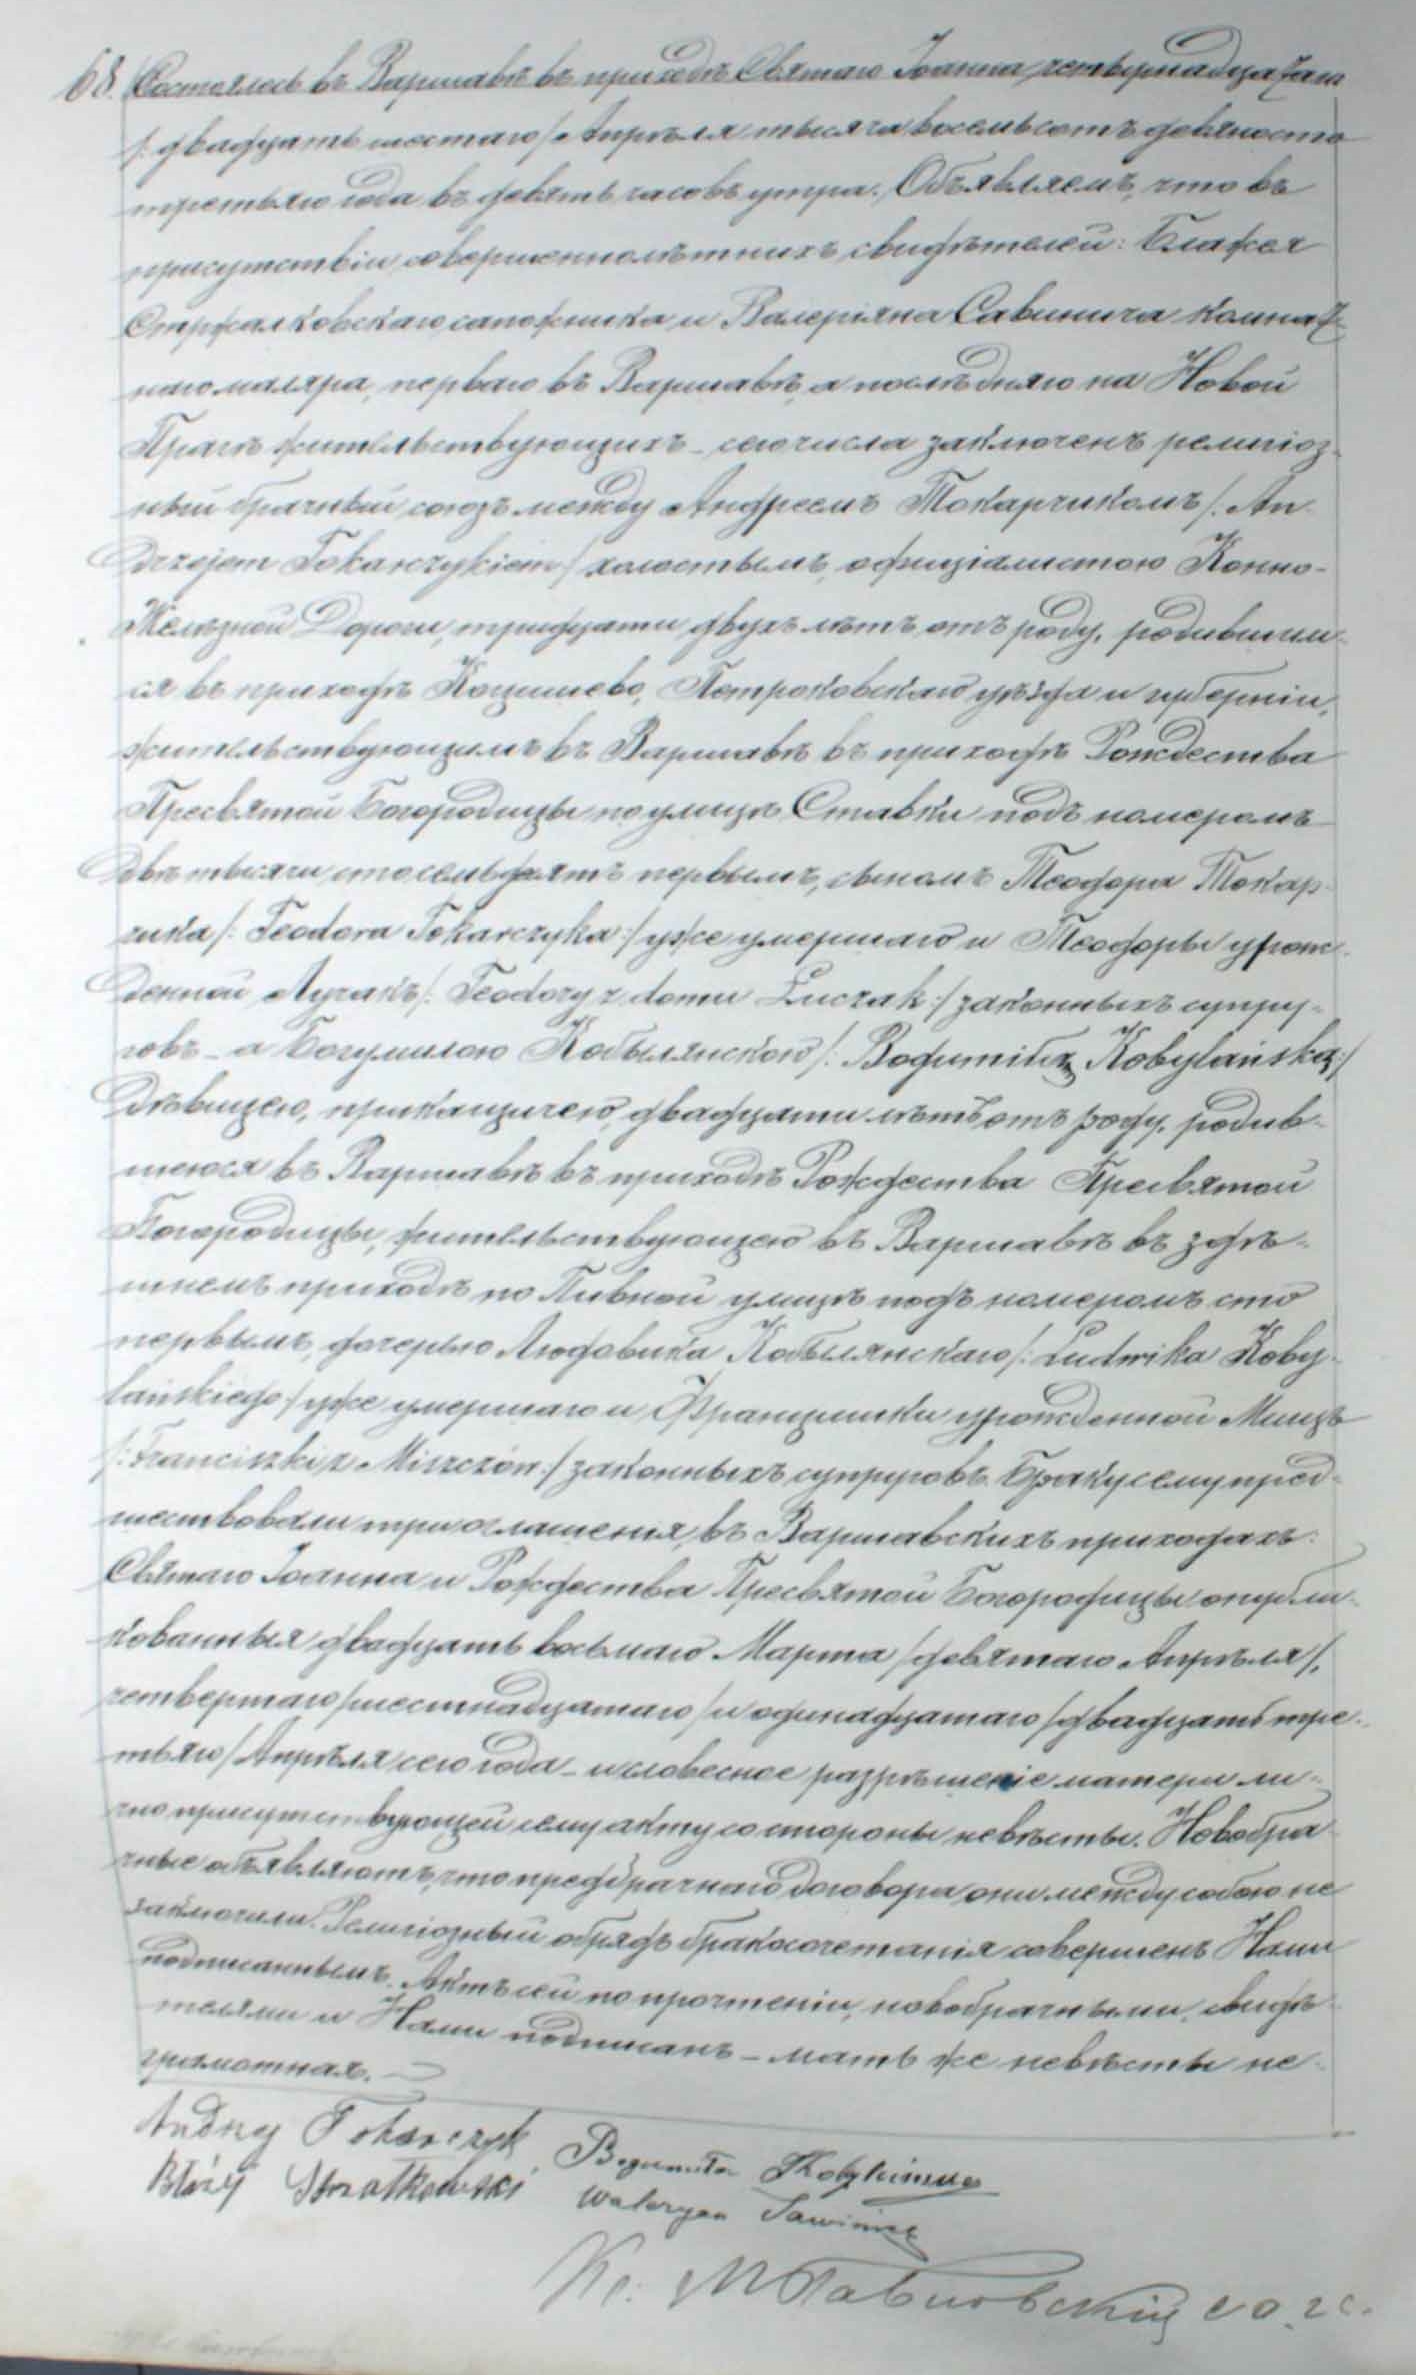 68. Состоялось въ Варшавѣ въ приходѣ Святаго Іоанна, четырнадцатаго
/: двадцать шестаго / Апрѣля тысяча восемьсотъ девяносто
третьяго года въ девять часовъ утра. Объявляемъ, что въ
присутствіи совершеннолѣтнихъ свидѣтелей: Блажея
Стржалковскаго, сапожника и Валеріяна Савинича комнат-
наго маляра, перваго въ Варшавѣ, а послѣдняго на Новой
Прагѣ жительствующихъ – сего числа заключенъ религіоз-
ный брачный союзъ между Андреемъ Токарчикомъ /: An-
drzejem Tokarczykiem / холостымъ, официялистою Конно-
Желѣзной Дороги, тридцати двухъ лѣтъ отъ роду, родившим-
ся въ приходѣ Коцишево, Петроковскаго уѣзда и губерніи,
жительствующимъ въ Варшавѣ въ приходѣ Рождества
Пресвятой Богородицы по улицѣ Ставки подъ номеромъ
двѣ тысячи сто семьдесятъ первымъ, сыномъ Теодора Токар-
чика /: Teodora Tokarczyka :/ уже умершаго и Теодоры урож-
денной Лучакъ /: Teodory z domu Łuczak :/ законныхъ супру-
говъ – а Богумилою Кобылянскою /: Bogumiłą Kobylańską :/
дѣвицею, прикащичею, двадцати лѣтъ отъ роду, родив-
шеюся въ Варшавѣ въ приходѣ Рождества Пресвятой
Богородицы, жительствующею въ Варшавѣ въ здѣ-
шнемъ приходѣ по Пивной улицѣ подъ номеромъ сто
первымъ, дочерью Людовика Кобылянскаго /: Ludwika Koby-
lańskiego / уже умершаго и Францишки урожденной Мищъ
/: Franciszki z Miszczów :/ законныхъ супруговъ. Браку сему пред-
шествовали три оглашенія, въ Варшавскихъ приходахъ:
Святаго Іоанна и Рождества Пресвятой Богородицы опубли-
кованныя двадцать восьмаго Марта / девятаго Апрѣля /,
четвертаго / шестнадцатаго / и одинадцатаго / двадцать тре-
тьяго / Апрѣля сего года – и словесное разрѣшеніе матери ли-
чно присутствующей сему акту со стороны невѣсты. Новобра-
чные объявляютъ, что предбрачнаго договора они между собою не
заключили. Религіозный обрядъ бракосочетанія совершенъ Нами
подписаннымъ. Актъ сей по прочтеніи, новобрачными, свидѣ-
телями и Нами подписанъ – мать же невѣсты не-
грамотная. –
Andrzej Tokarczyk Bogumiła Kobylańska
Błażej Strzałkowski Waleryan Sawinicz
Кс.